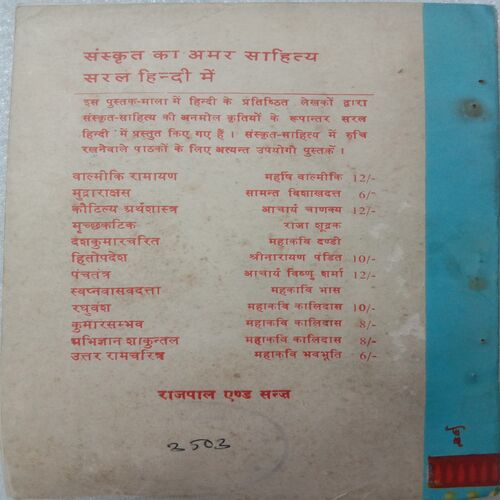 संस्कृत का अमर साहित्य
सरल हिन्दी में
इस पुस्तक-माला में हिन्दी के प्रतिष्ठित लेखकों द्वारा
संस्कृत-साहित्य की अनमोल कृतियों के रूपान्तर सरल
हिन्दी में प्रस्तुत किए गए हैं । संस्कृत-साहित्य में रुचि
रखनेवाले पाठकों के लिए अत्यन्त उपयोगी पुस्तकें ।
वाल्मीकि रामायण महर्षि वाल्मीकि 12/-
मुद्राराक्षस सामन्त विशाखदत्त 6/-
कौटिल्य अर्थशास्त्र आचार्य चाणक्य 12/-
मृच्छकटिक राजा शूद्रक
दशकुमारचरित महाकवि दण्डी
हितोपदेश श्रीनारायण पंडित 10/-
पंचतंत्र आचार्य विष्णु शर्मा 12/-
स्वप्नवासवदत्ता महकावि भास
रघुवंश महाकवि कालिदास 10/-
कुमारसम्भव महाकवि कालिदास 8/-
अभिज्ञान शाकुन्तल महाकवि कालिदास 8/-
उत्तर रामचरित्र महाकवि भवभूति 6/-
राजपाल एण्ड सन्ज़
3503